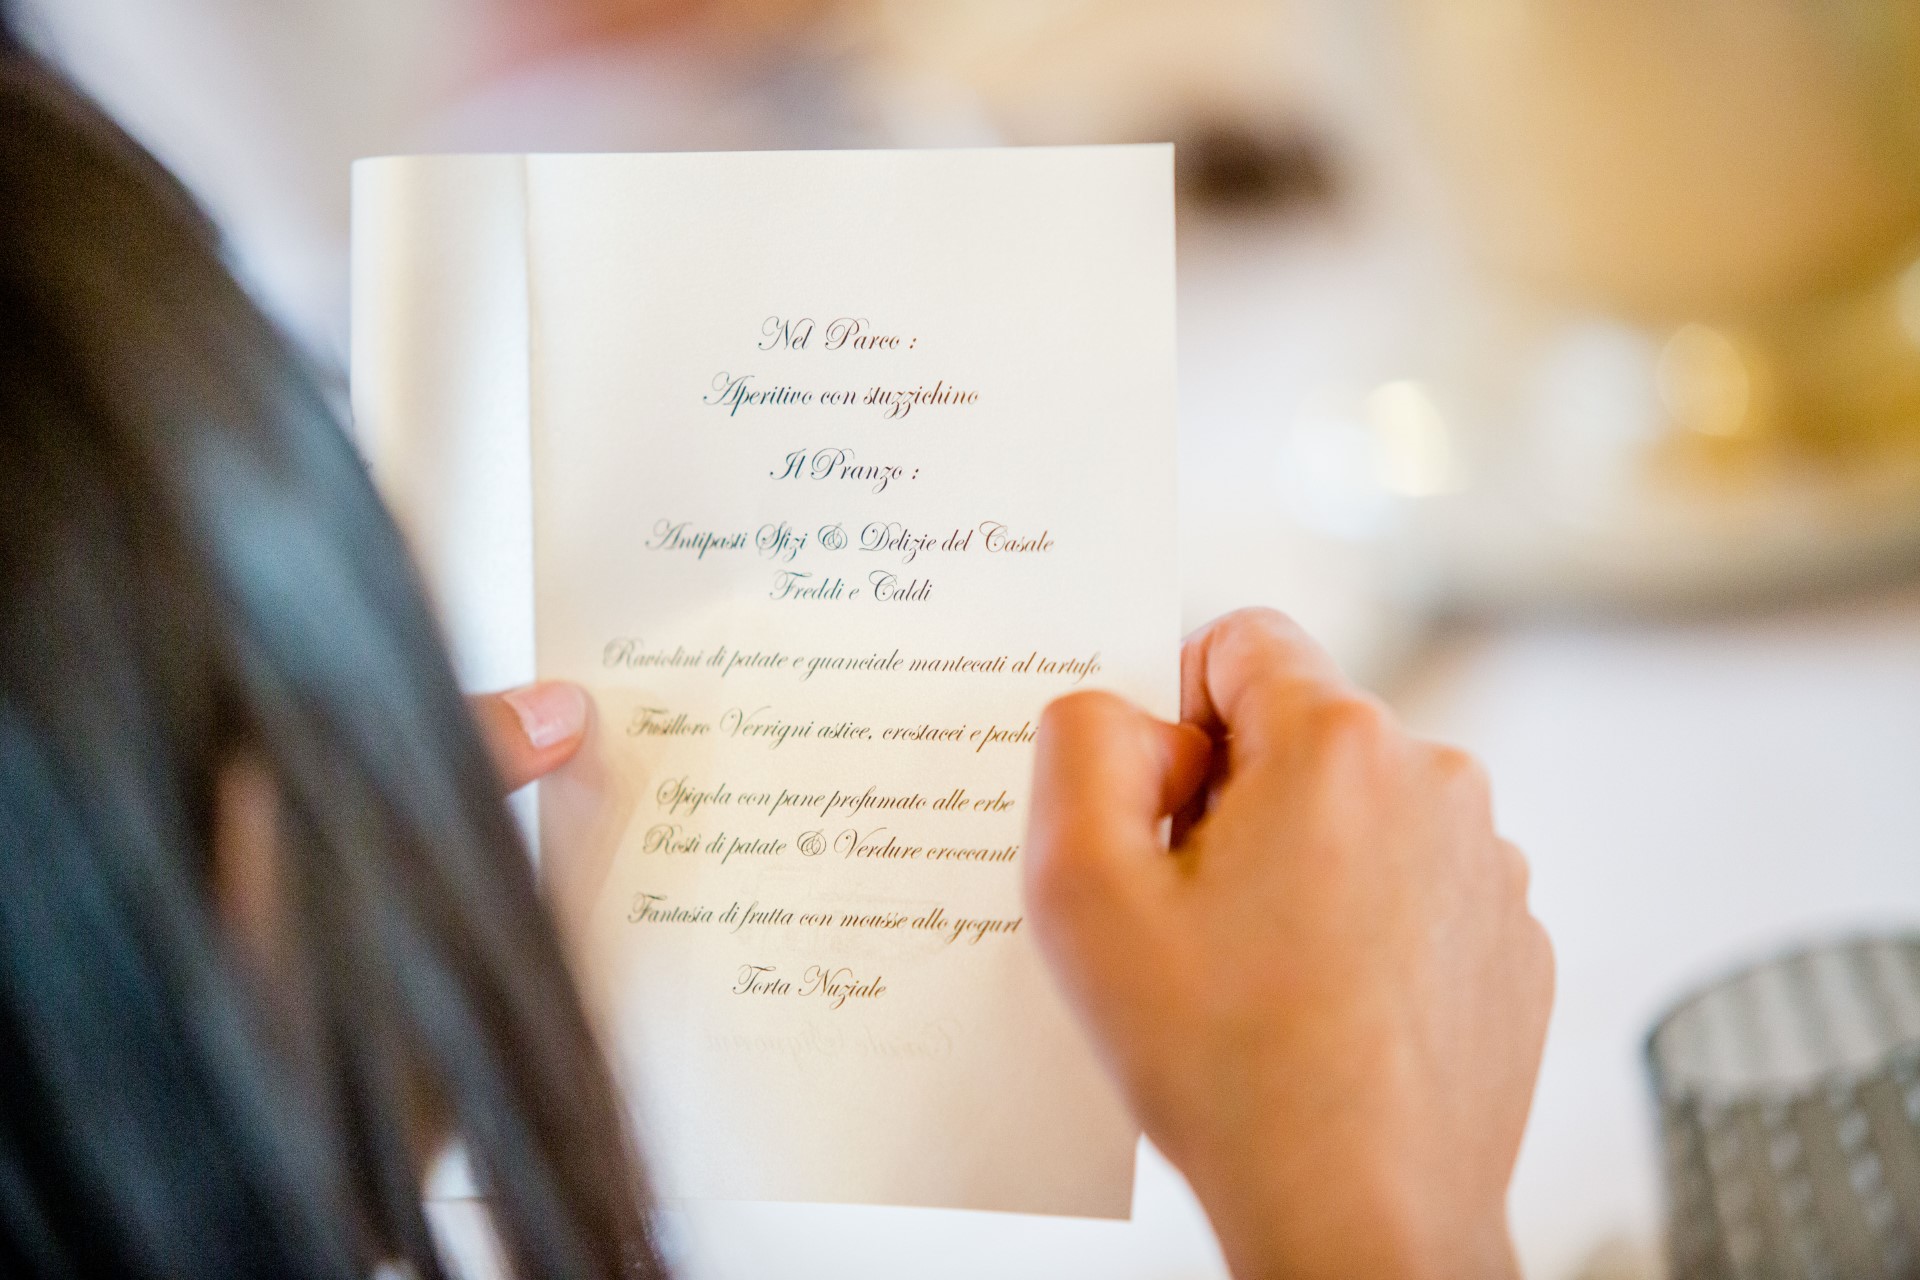 Nel Parco :
Aperitivo con stuzzichino
Il Pranzo :
Antipasti Sfizi & Delizie del Casale
Freddi e Caldi
Raviolini di patate e guanciale mantecati al tartufo
Fusilloro Verrigni astice, crostacei e pachi
Spigola con pane profumato alle erbe
Rosti di patate & Verdure croccanti
Fantasia di frutta con mousse allo yogurt
Torta Nuziale